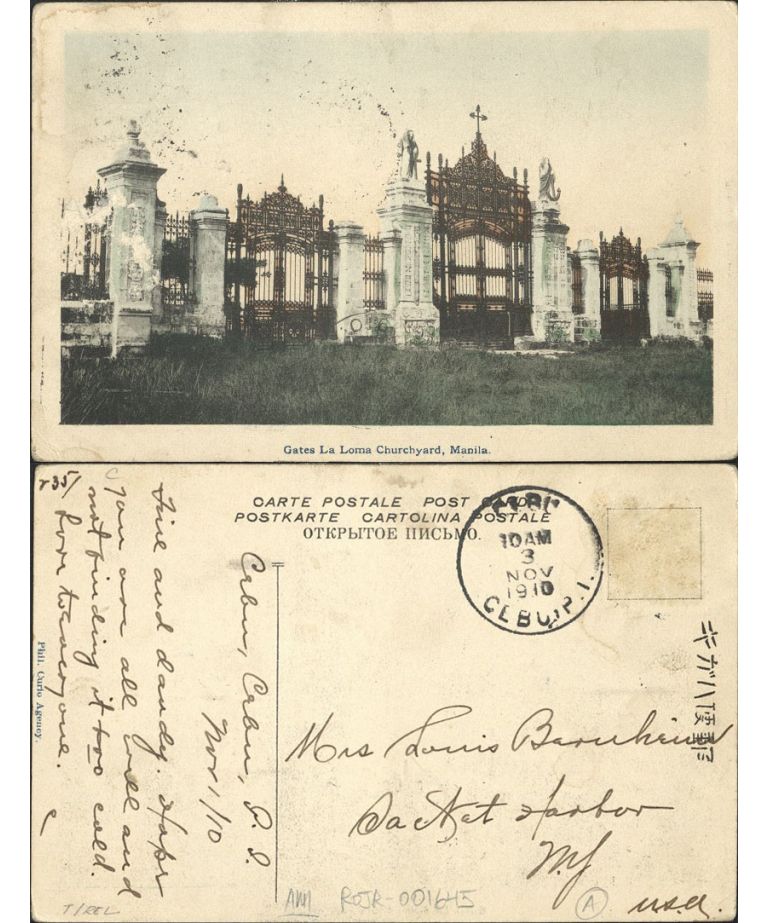 Gates La Loma Churchyard, Manila.
CARTE POSTALE POST CARD
POSTKARTE CARTOLINA POSTALE
ОТКРЫТОЕ ПИСЬМО.
10AM
3
NOV
1910
CEBU, P.I.
キガハ便郵
Cebu, Cebu, P. I.
Nov 1/10
Fine and dandy. Hope
you are all well and
not finding it too cold.
Love to everyone.
Phil. Curio Agency.
Mrs Louis
Sacket Harbor
N.Y.
U.S.A.
T/REL
AM ROJR-001645
A